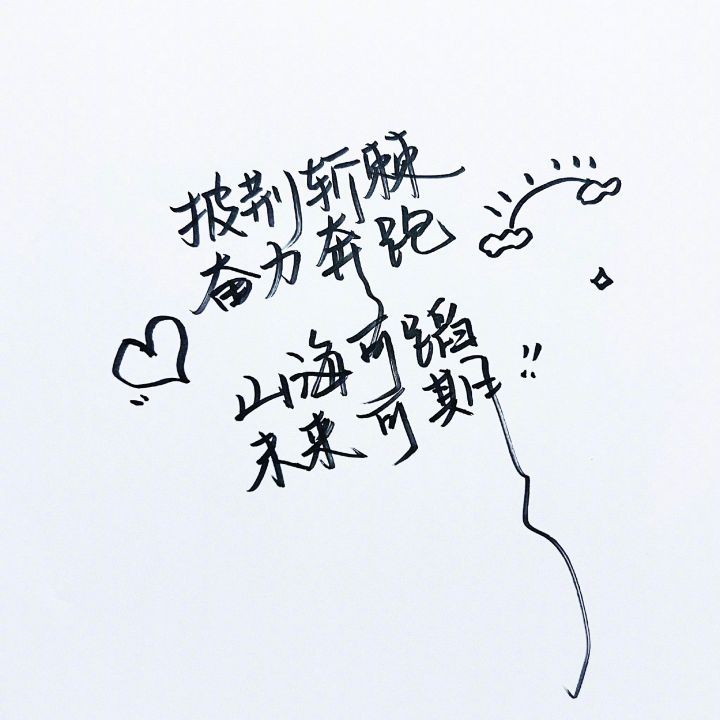 披荆斩棘
奋力奔跑
山海可蹈
未来可期!!